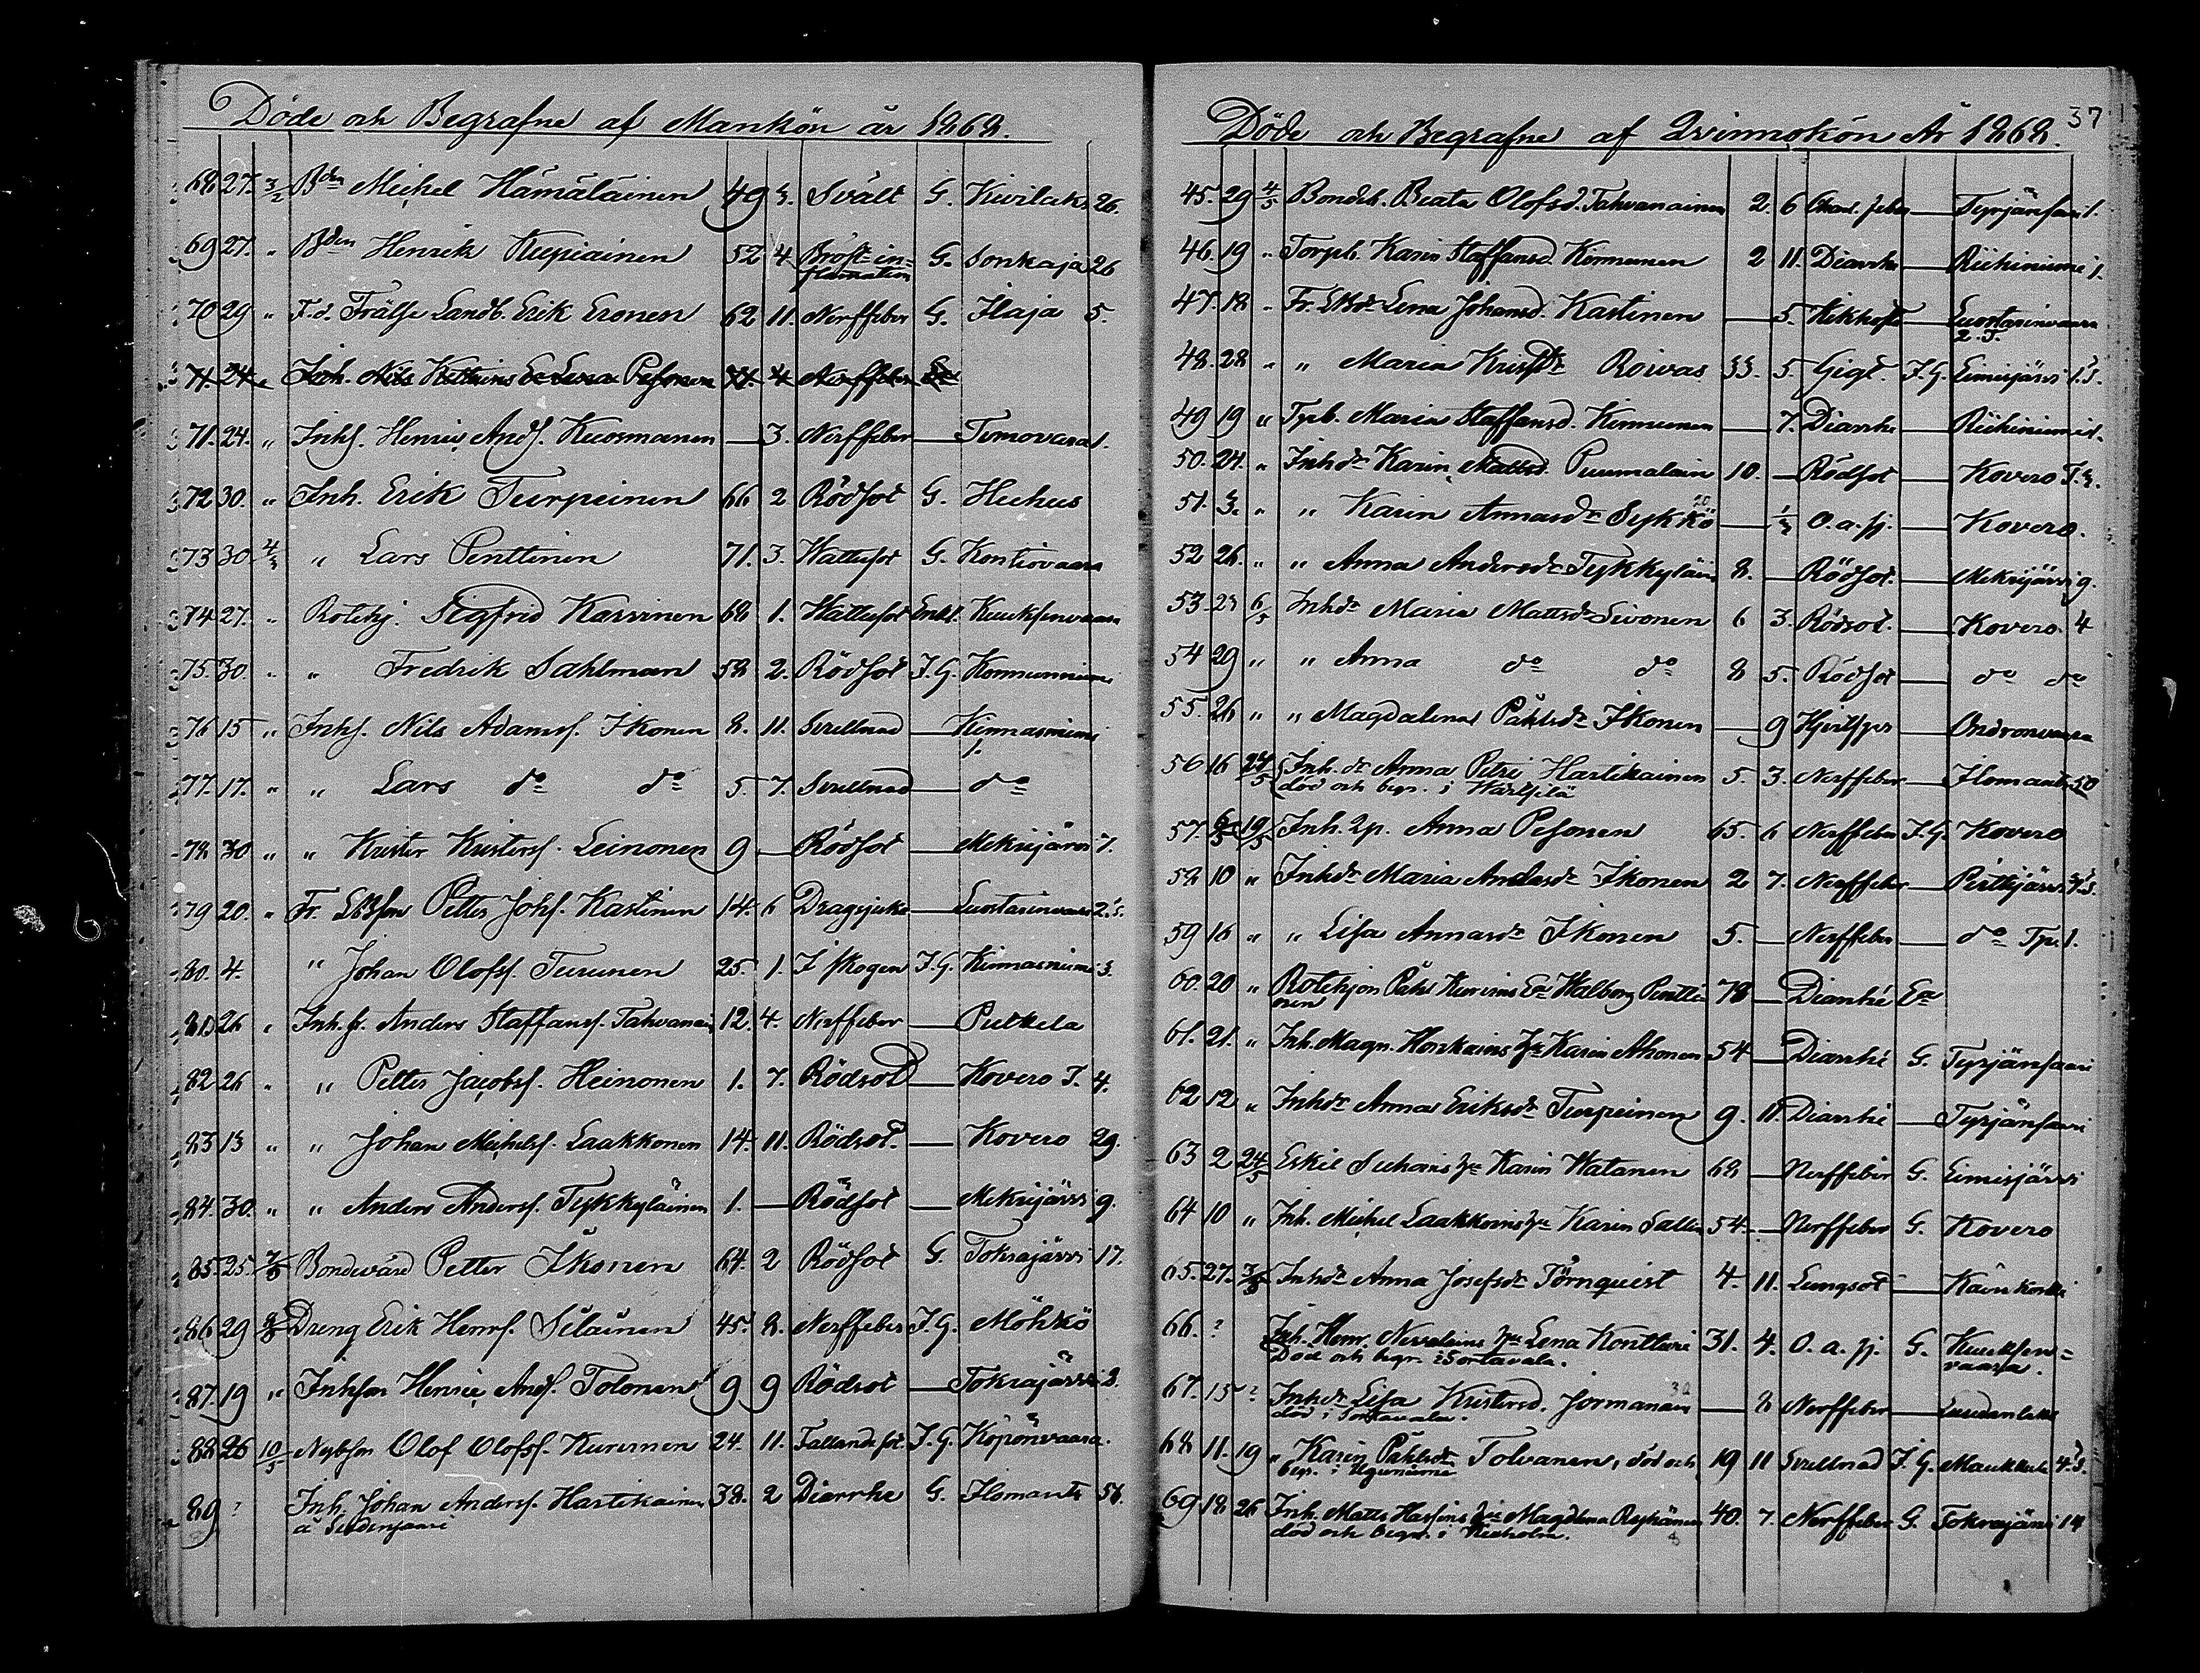 Döde och Begrafne af Mankön år 1868.
68 27. 3/2 Bden Michel Hämäläinen 49 3. Svält G. Kivilaks 26.
69 27. " Bden Henrik Kupiainen 52 4 Bröst in=
flamation G. Sonkaja 26
70 29 " F.d. Frälse Landb. Erik Eronen 62 11. Nerffeber G. Ilaja 5.
71. 24. " Inhs. Henric Ands. Kuosmanen — 3. Nerffeber — Temovaara 1.
72 30. " Inh. Erik Turpeinen 66 2 Rödsot G. Huhus
73 30. 4/3 " Lars Penttinen 71. 3. Wattusot G. Kontiovaara
74 27. " Rotehj. Sigfrid Karvinen 68 1. Wattusot Enkl. Kuuksenvaara
75. 30. " " Fredrik Sahlman 58 2. Rödsot I.G. Konnunniemi
76 15 " Inhs. Nils Adamss. Ikonen 8. 11. Svullnad — Kinnasniemi
1.
77. 17. " " Lars do do 5. 7. Svullnad — do
78 30 " " Krister Kristers. Leinonen 9 — Rödsot — Mekrijärvi 7.
79 20. " Fr. LBson Petter Johs. Kastinen 14. 6 Dragsjuka — Luostarinvaara 2.
80. 4. " Johan Olofss. Turunen 25. 1. I skogen I.G. Kinnasniemi 3.
81. 26 " Inh. s. Anders Staffanss. Tahvanai 12. 4. Nerffeber — Putkela
82 26 " " Petter Jacobss. Heinonen 1. 7. Rödsot — Kovero T. 4.
83 13 " " Johan Michelss. Laakkonen 14. 11. Rödsot. — Kovero 29.
84. 30. " " Anders Anderss. Tykkyläinen 1. — Rödsot — Mekrijärvi 9.
85. 25. 7/3 Bondevärd Petter Ikonen 64. 2 Rödsot G. Tokrajärvi 17.
86 29 8/3 Dreng Erik Henrs. Silainen 45. 8. Nerffeber I.G. Möhkö
87. 19 " Inhson Henric Ands. Tolonen 9 9 Rödsot — Tokrajärvi 2.
88 26 10/5 Nybson Olof Olofss. Kurvinen 24. 11. Fallandesot I.G. Köpönvaara.
89 ? Inh. Johan Anderss. Hartikainen 38. 2 Diarrhe G. Ilomants 56.
37
Döde och Begrafne af Qvinnokön År 1868.
45. 29 4/5 Bondeb. Beata Olofsd. Tahvanainen 2. 6 — Tyrjänsaari.
46. 19 " Torpb. Karin Staffansd. Kinnunen 2 11. Diarrhe — Riihiniemi 1.
47. 18 " Fr. LBdr Lena Johansd. Kastinen — 5. Kikhosta — Luostarinvaara
48. 28 " " Maria Kristsdr Roivas 33. 5. Gigt. I.G. Limisjärvi
49 19 " Typb. Maria Staffansd. Kinnunen — 7. Diarrhe — Riihiniemi 1.
50. 24. " Inhdr Karin Mattsd. Puumalain 10. — Rödsot — Kovero T. 3.
51. 3. " " Karin Annasdr Sykkö — 1/3 O.a.sj. — Kovero.
52 26. " " Anna Andersdr Tykkyläin 8. — Rödsot. — Mekrijärvi 9.
53. 23 6/5 Inhdr Maria Mattsdr Sivonen 6 3. Rödsot. — Kovero. 4
54 29 " " Anna do do 8 5. Rödsot — do do
55. 26 " " Magdalena Påhlsdr Ikonen — 9 — Ondronvaara
56 16 24/5 Inh.dr Anna Petri Hartikainen 5. 3. Nerffeber — Ilomants 50
död och begr. i Wärtsilä
57. 19/5 Inh. Qp. Anna Pesonen 65. 6 Nerffeber I.G. Kovero
58 10 " Inhdr Maria Andersdr Ikonen 2 7. Nerffeber — Perttijärvi
59 16 " " Lisa Annasdr Ikonen 5. — Nerffeber — do Tp. 1.
60. 20 " Rotehjon Påhl Kurvins Ea Walborg Penttinen 78 — Diarrhé Ea
61. 21. " Inh. Magn. Honkains hu Karin Ahonen 54 — Diarrhé G. Tyrjänsaari
62 12 " Inhdr Anna Eriksdr Turpeinen 9. 11. Diarrhé — Tyrjänsaari
63 2 24/5 Eskil Suhois hu Karin Watanen 68 — Nerffeber G. Limisjärvi
64 10 " Inh. Michel Laakkoins hu Karin Sallin 54. — Nerffeber G. Kovero
65. 27. Inhdr Anna Josefsdr Törnquist 4. 11. Lungsot —
66. ? Inh. Henr. Nevalains hu Lena Kontturi 31. 4. O.a.sj. G. Kuuksen=
vaara.
Död och begr. i Sortavala.
67. 15 ? Inhdr Lisa Kristersd. Jormanain — 8 Nerffeber —
död i Sortavala.
68 11. 19 " Karin Påhlsdr Tolvanen, död och 19 11 Svullnad I.G. Maukkula
begr. i Uguniemi
69 18 26 Inh. Matts Hassins hu Magdlena Reijonen 40. 7. Nerffeber G. Tokrajärvi 14
död och begr. i Kexholm.